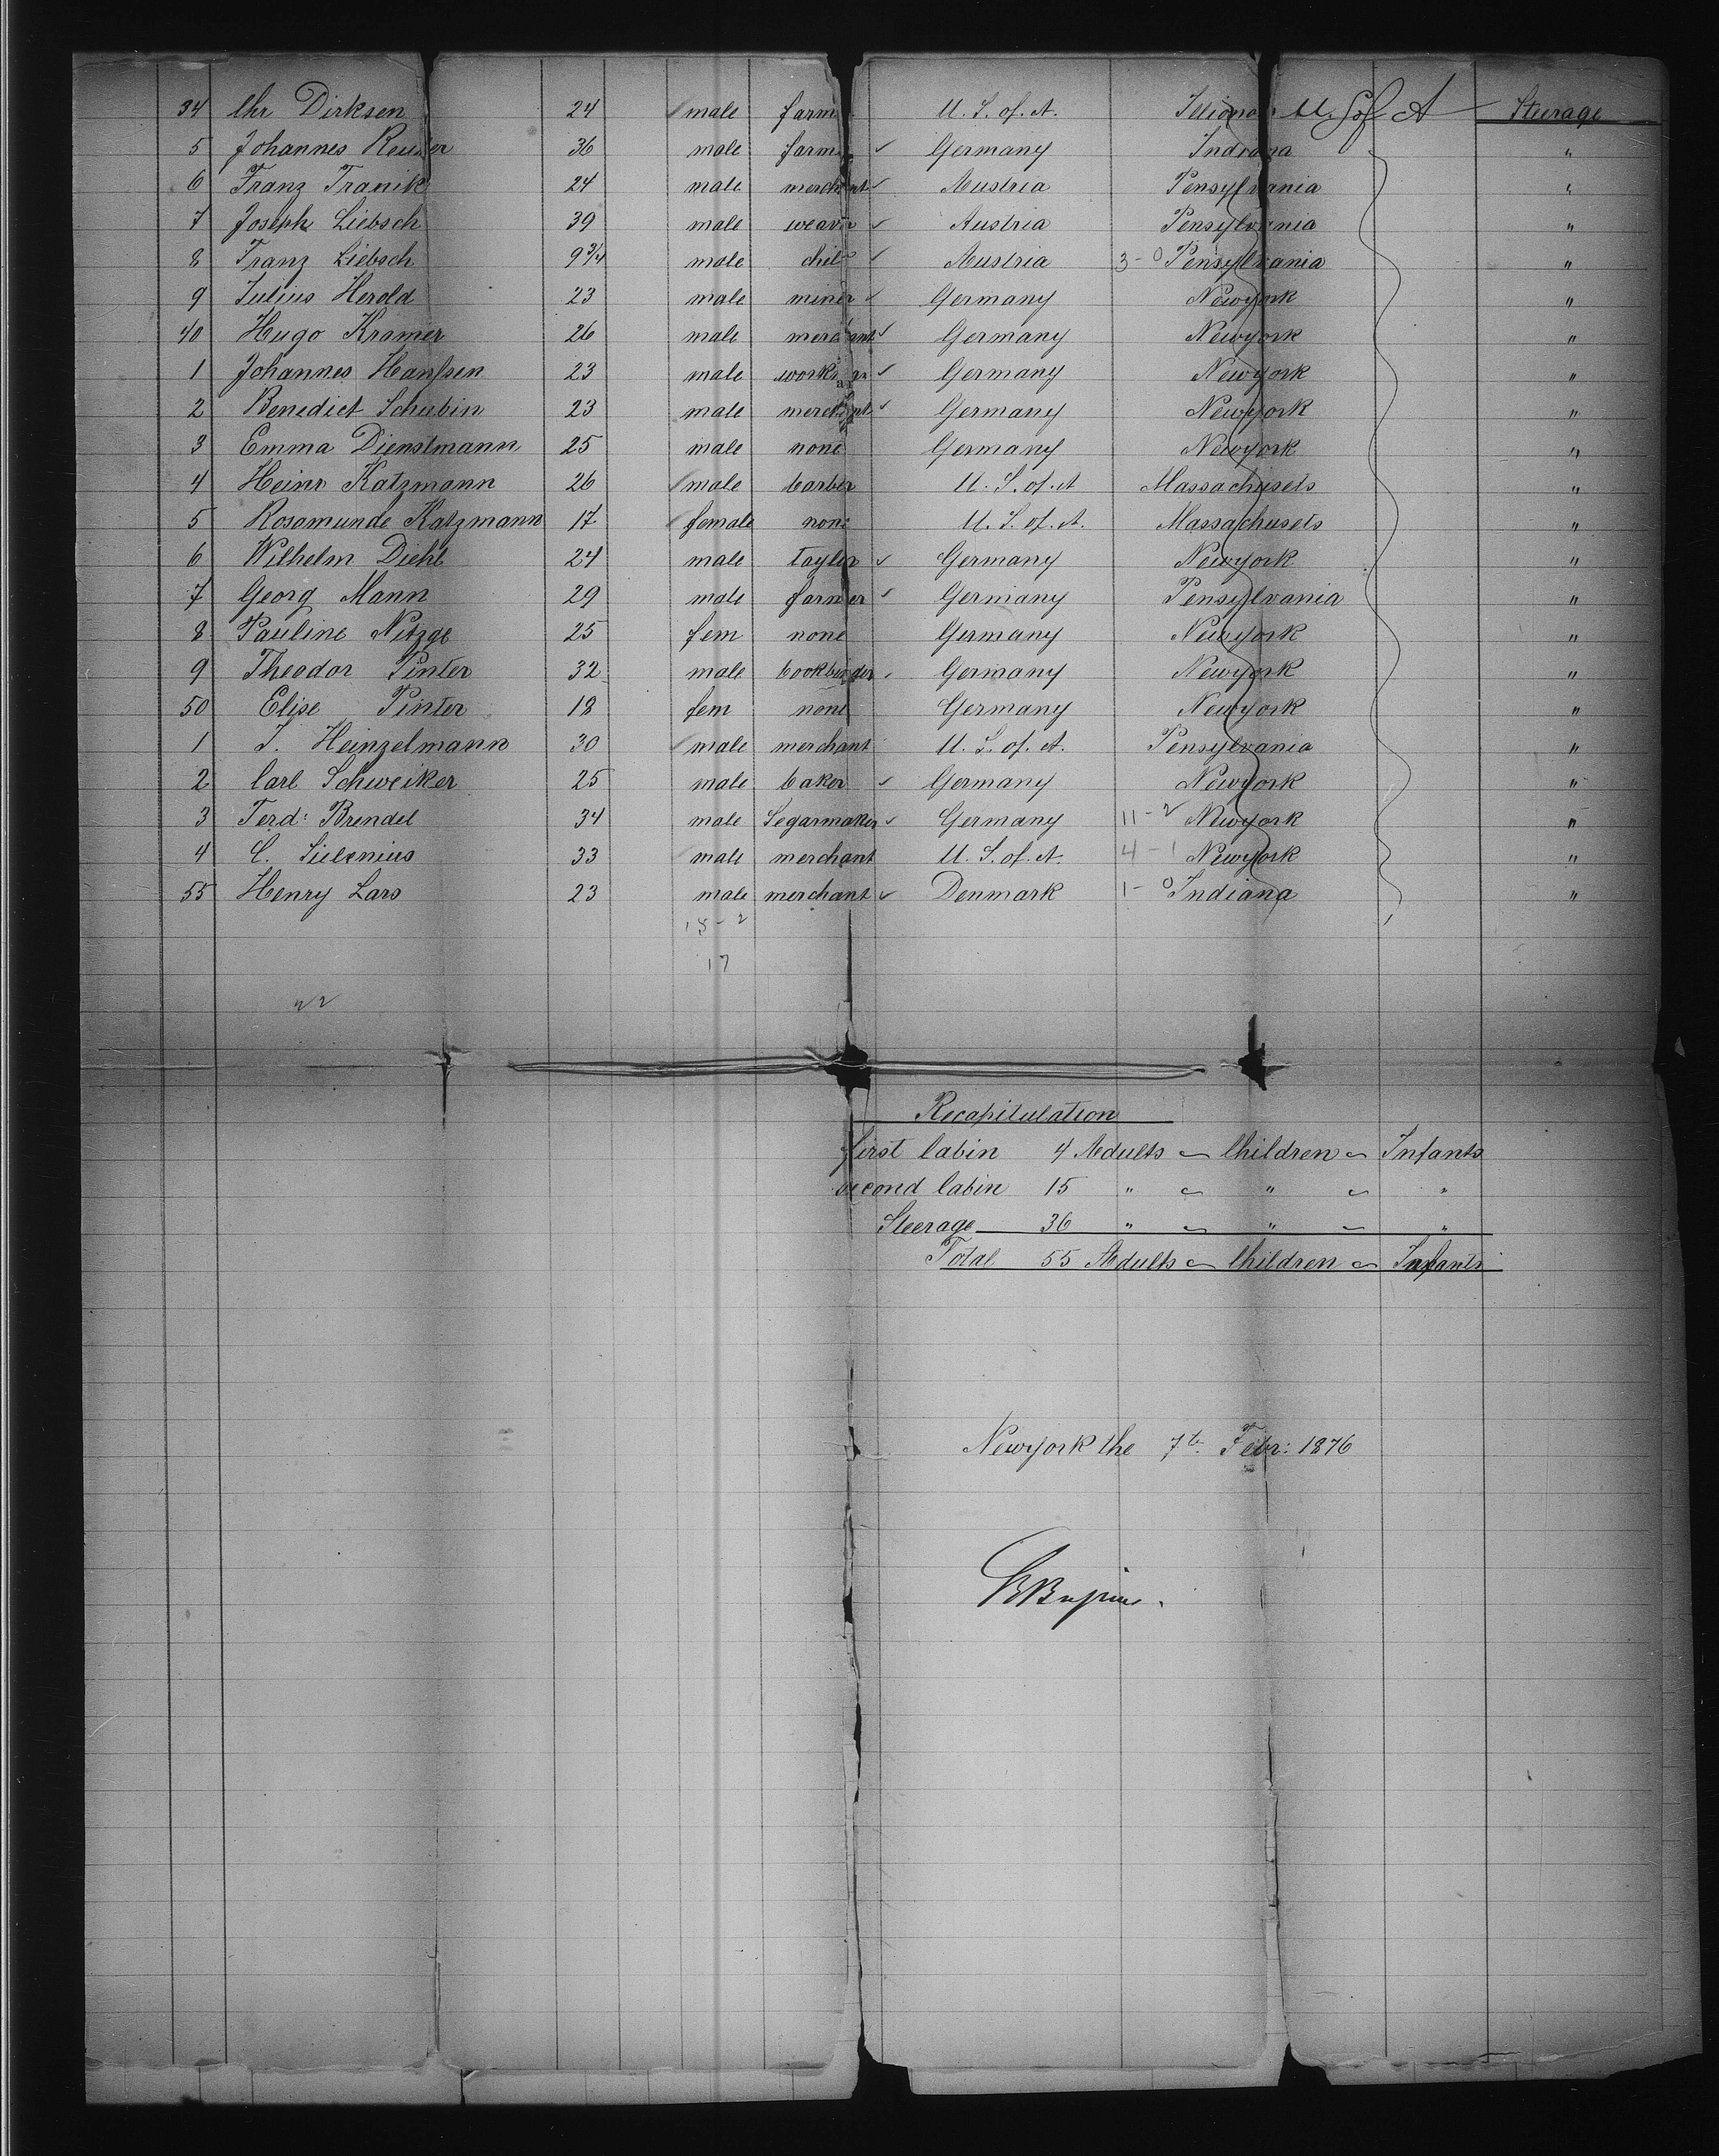 34 Chr Dirksen 24 male farm U. S. of. A. Illinois U. S of A Steerage
5 Johannes Reuter 36 male farm Germany Indiana "
6 Franz Tranik 24 male merchant Austria Pensylvania "
7 Joseph Liebsch 39 male weaver Austria Pensylvania "
8 Franz Liebsch 9 3/4 male child Austria 3-0 Pensylvania "
9 Julius Herold 23 male miner Germany Newyork "
40 Hugo Kramer 26 male merchant Germany Newyork "
1 Johannes Hanssen 23 male Germany Newyork "
2 Benedict Schubin 23 male merchant Germany Newyork "
3 Emma Dienstmann 25 male none Germany Newyork "
4 Heinr Katzmann 26 male barber U. S. of. A Massachusets "
5 Rosamunde Katzmann 17 female none U. S. of. A. Massachusets "
6 Wilhelm Diehl 24 male taylor Germany Newyork "
7 Georg Mann 29 male farmer Germany Pensylvania "
8 Pauline Nitzge 25 fem none Germany Newyork "
9 Theodor Pinter 32 male bookbinder Germany Newyork "
50 Elise Pinter 18 fem none Germany Newyork "
1 J. Heinzelmann 30 male merchant U. S. of. A. Pensylvania "
2 Carl Schweiker 25 male baker Germany Newyork "
3 Ferd: Brendel 34 male Segarmaker Germany 11-2 Newyork "
4 C. 33 male merchant U. S. of. A. 4-1 Newyork "
55 Henry Lars 23 male merchant Denmark 1-0 Indiana "
18-2
17
22
Recapitulation
first Cabin 4 Adults - Children - Infants
second Cabin 15 " - " - "
Steerage 36 " - " - "
Total 55 Adults - Children - Infants
Newyork the 7te Febr: 1876